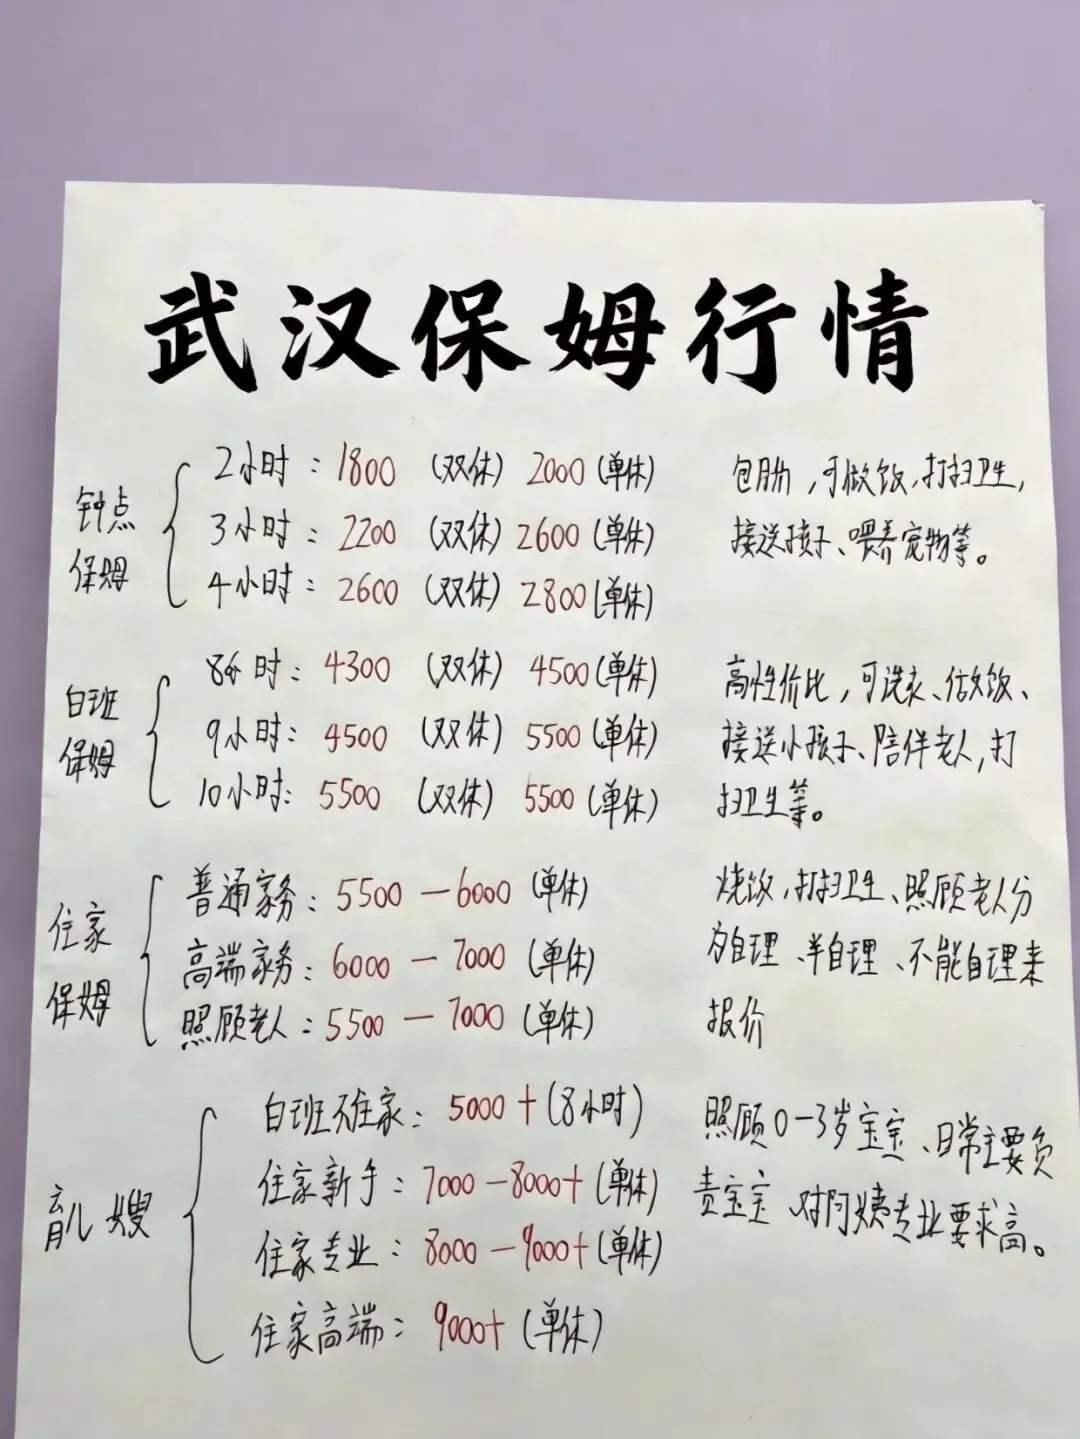 武汉保姆行情
钟点保姆
2小时：1800（双休）2000（单休）
3小时：2200（双休）2600（单休）
4小时：2600（双休）2800（单休）
包月，可做饭，打扫卫生，
接送孩子、喂养宠物等。
白班保姆
8小时：4300（双休）4500（单休）
9小时：4500（双休）5500（单休）
10小时：5500（双休）5500（单休）
高性价比，可洗衣、做饭、
接送小孩子、陪伴老人，打
扫卫生等。
住家保姆
普通家务：5500—6000（单休）
高端家务：6000—7000（单休）
照顾老人：5500—7000（单休）
烧饭，打扫卫生、照顾老人分
为自理、半自理、不能自理来
报价
育儿嫂
白班不住家：5000+（8小时）
住家新手：7000—8000+（单休）
住家专业：8000—9000+（单休）
住家高端：9000+（单休）
照顾0-3岁宝宝、日常主要负
责宝宝、对阿姨专业要求高。